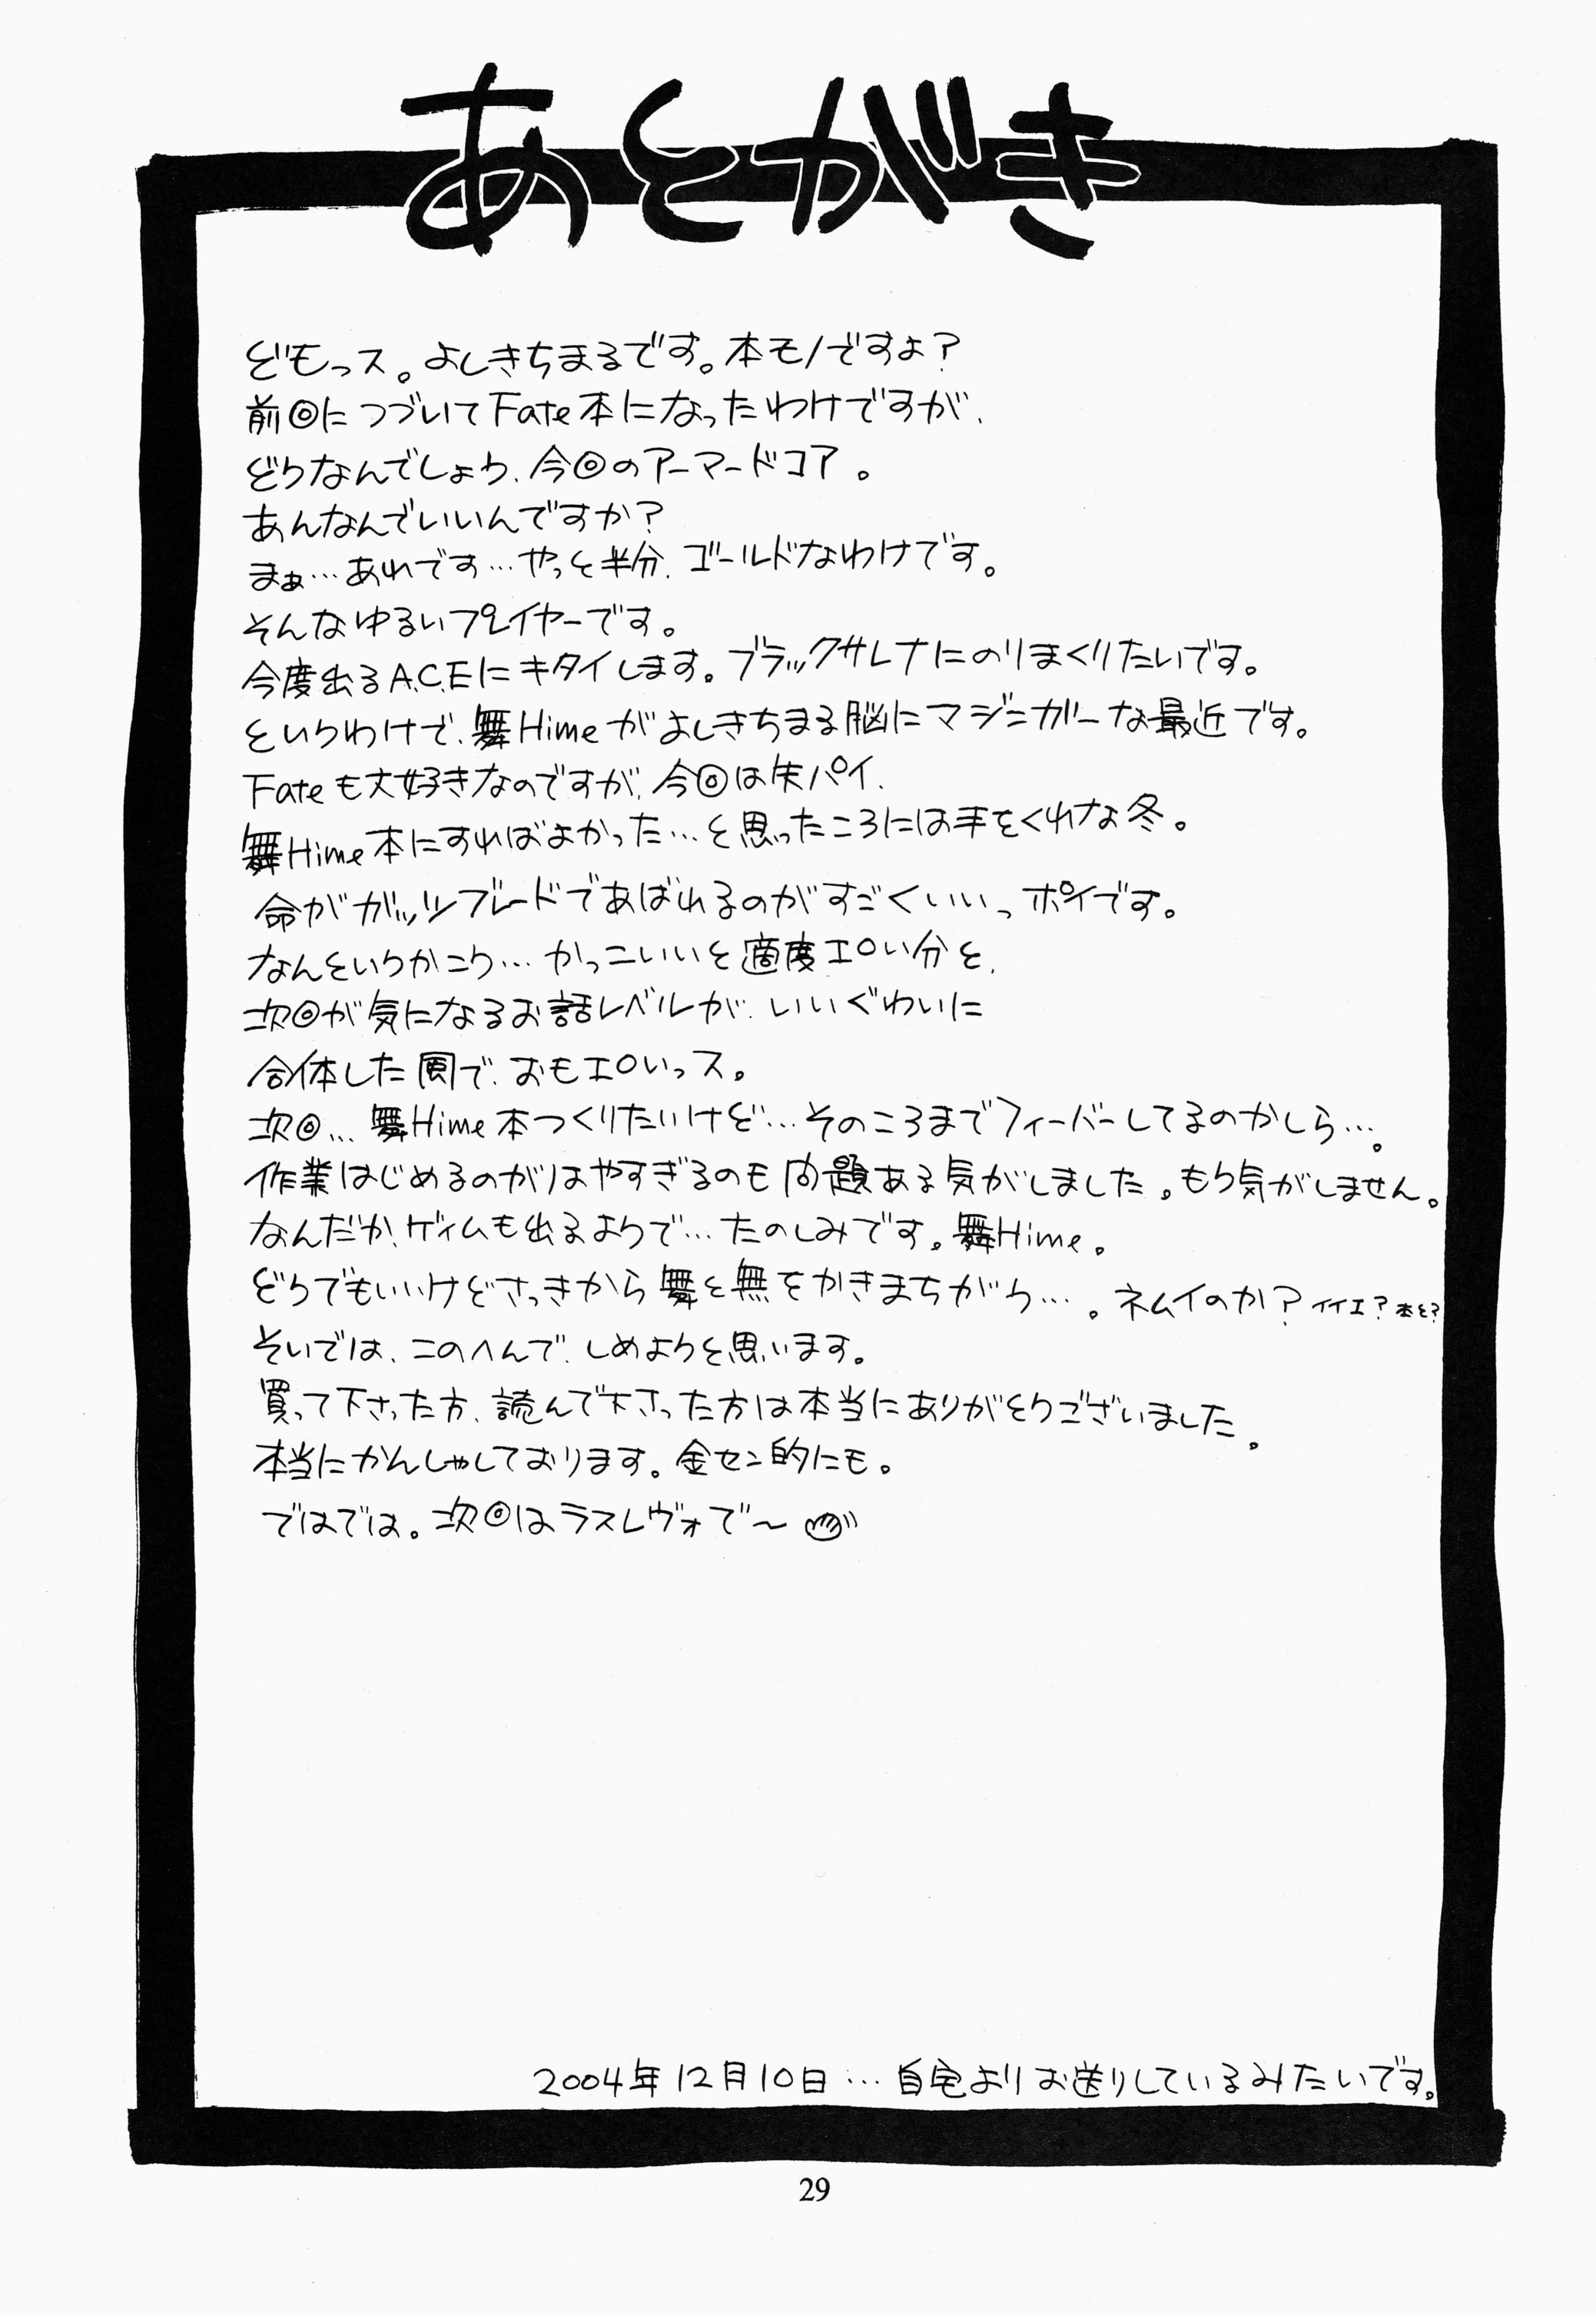 あとがき
どもっス。よしきちまるです。本モノですよ?
前回につづいてFate本になったわけですが、
どうなんでしょう、今回のアーマードコア。
あんなんでいいんですか?
まぁ…あれです…やっと半分、ゴールドなわけです。
そんなゆるいプレイヤーです。
今度出るA.C.Eにキタイします。ブラックサレナにのりまくりたいです。
というわけで、舞Himeがよしきちまる脳にマジンガーな最近です。
Fateも大好きなのですが、今回は失パイ、
舞Hime本にすればよかった…と思ったころには手をくれな冬。
命がガッツブレードであばれるのがすごくいいっポイです。
なんというかこう…かっこいいと適度エロい分と、
次回が気になるお話レベルが、いいぐわいに
合体した風で、おもエロいっス。
次回…舞Hime本つくりたいけど…そのころまでフィーバーしてるのかしら…。
作業はじめるのがはやすぎるのも問題ある気がしました。もう気がしません。
なんだか、ゲイムも出るようで…たのしみです。舞Hime。
どうでもいいけどさっきから舞と無をかきまちがう…。ネムイのか? イイエ? 本と?
そいでは、このへんで、しめようと思います。
買って下さった方、読んで下さった方は本当にありがとうございました。
本当にかんしゃしております。金セン的にも。
ではでは。次回はラスレヴォで～
2004年12月10日…自宅よりお送りしているみたいです。
29